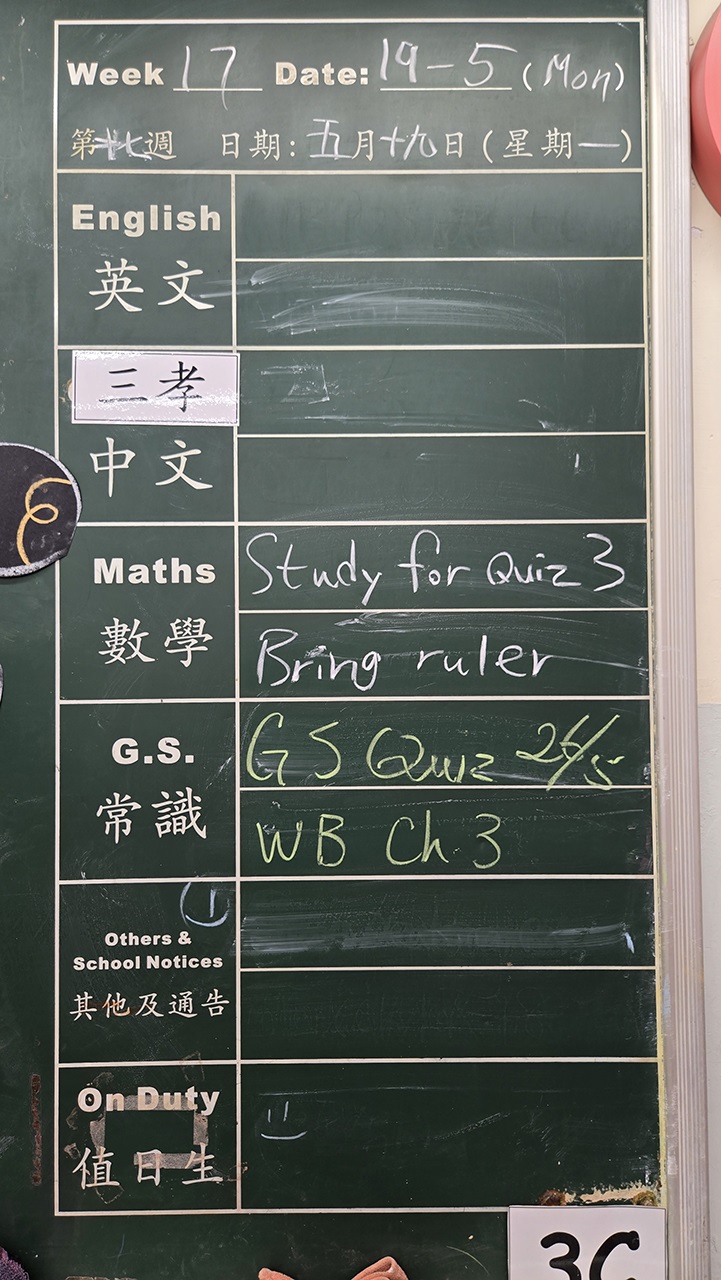 Week 17 Date: 19-5 (Mon)
第十七週 日期: 五月十九日 (星期一)
English
英文
三孝
中文
Maths
數學
Study for Quiz 3
Bring ruler
G.S.
常識
GS Quiz 26/5
WB Ch 3
Others &
School Notices
其他及通告
On Duty
值日生
3C